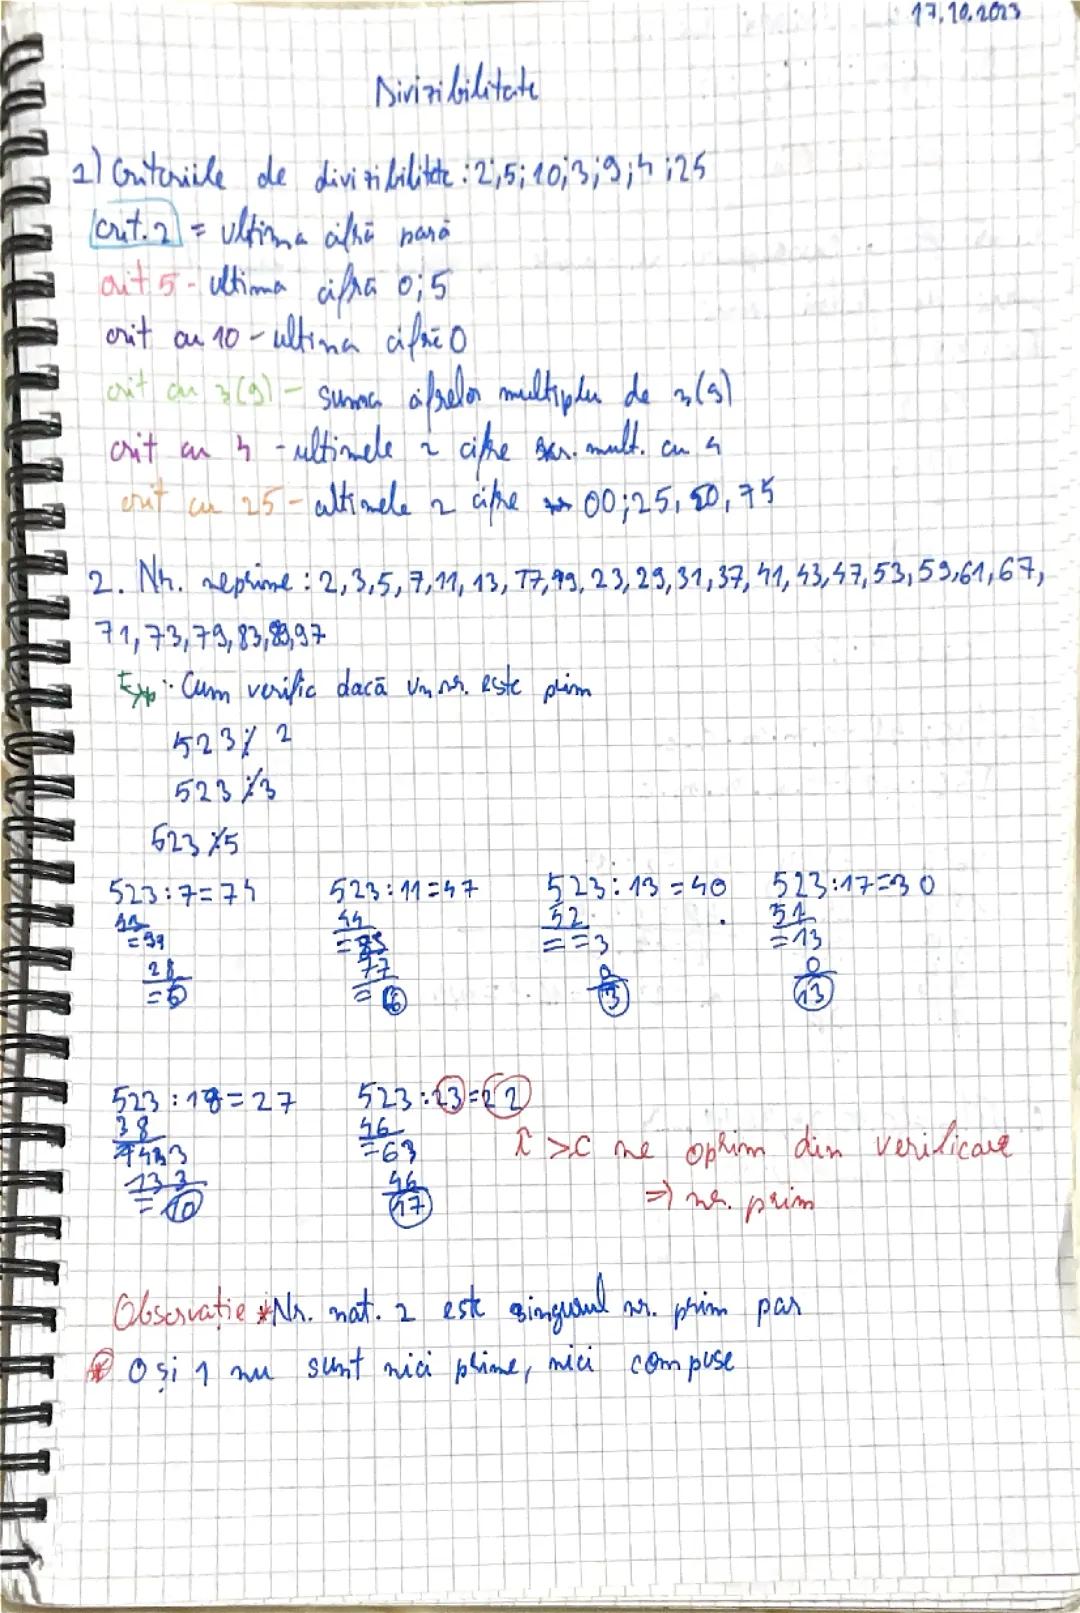 17.10.2023
Divizibilitate
1) Criteriile de divizibilitate: 2; 5; 10; 3; 9; 4; 25
crit. 2 = ultima cifră pară
crit 5 - ultima cifră 0; 5
crit cu 10 - ultima cifră 0
crit cu 3(9) - suma cifrelor multiplu de 3(9)
crit cu 4 - ultimele 2 cifre mult. cu 4
crit cu 25 - ultimele 2 cifre 00; 25, 50, 75
2. Nr. neprime: 2, 3, 5, 7, 11, 13, 17, 19, 23, 29, 31, 37, 41, 43, 47, 53, 59, 61, 67,
71, 73, 79, 83, 89, 97
Exp: Cum verific dacă un nr. este prim
523 ⁒ 2
523 ⁒ 3
523 ⁒ 5
523:7=74 523:11=47 523:13=40 523:17=30
44 52 51
= =3 =13
28 77 0 0
=5 = 6 3 13
523:19=27 523:23=22
38 46
=63
133 46 Î > C ne oprim din verificare
= 10 17 => nr. prim
Observație * Nr. nat. 2 este singurul nr. prim par
* 0 și 1 nu sunt nici prime, nici compuse